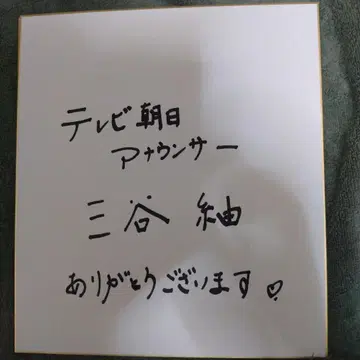 テレビ朝日
アナウンサー
三谷 紬
ありがとうございます♡